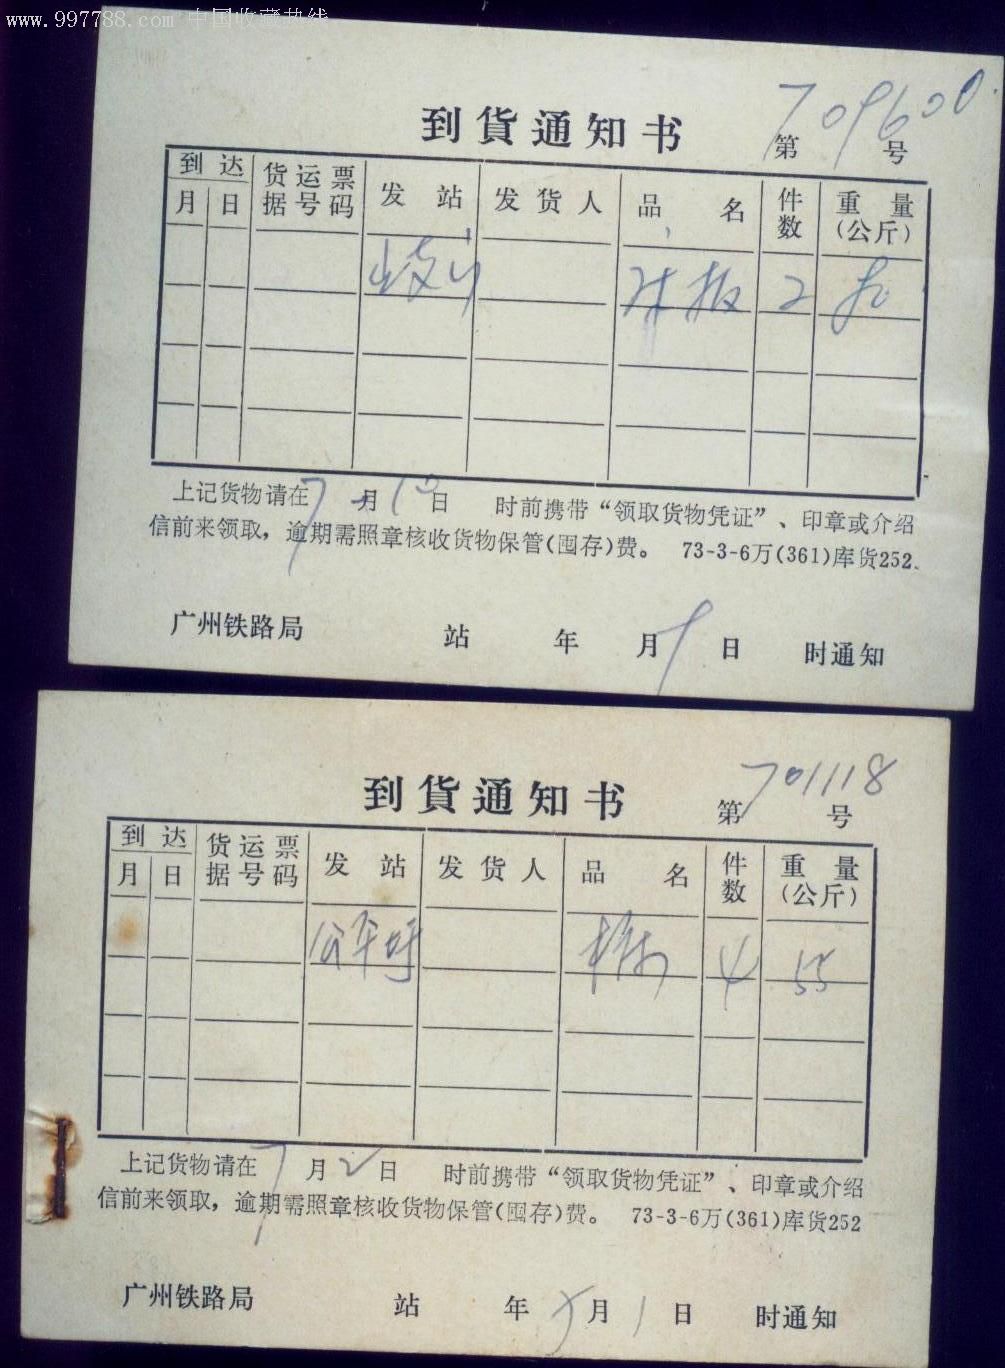 www.997788.com 中国收藏热线
到貨通知书
第709600号
到达 货运票据号码 发站 发货人 品名 件数 重量(公斤)
月 日
岐山 床板 2
上记货物请在7月10日 时前携带“领取货物凭证”、印章或介绍
信前来领取，逾期需照章核收货物保管(囤存)费。 73-3-6万(361)库货252.
广州铁路局 站 年 月9日 时通知
到貨通知书
第701118号
到达 货运票据号码 发站 发货人 品名 件数 重量(公斤)
月 日
公平圩 4 55
上记货物请在7月2日 时前携带“领取货物凭证”、印章或介绍
信前来领取，逾期需照章核收货物保管(囤存)费。 73-3-6万(361)库货252
广州铁路局 站 年 月1日 时通知